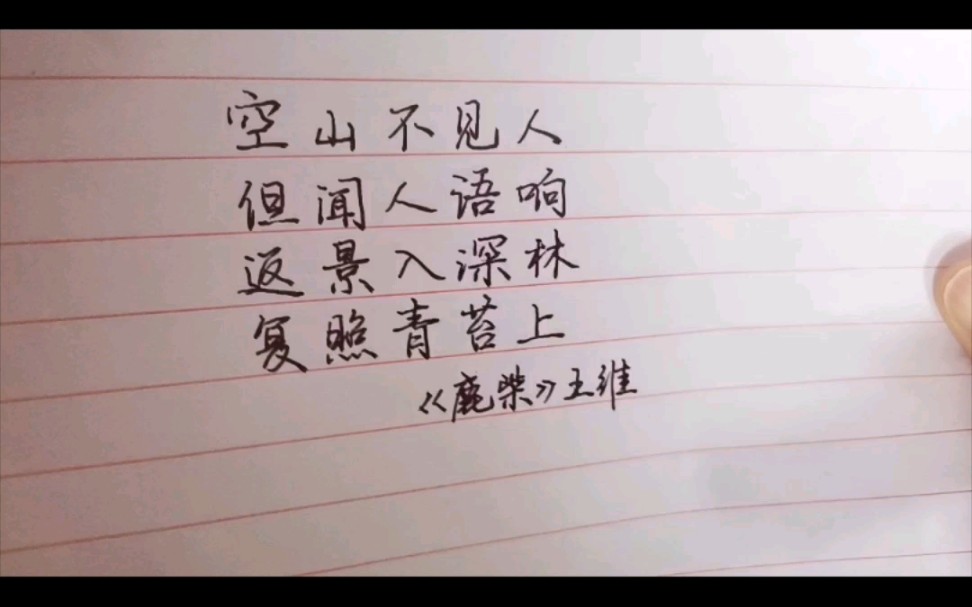 空山不见人
但闻人语响
返景入深林
复照青苔上
《鹿柴》王维